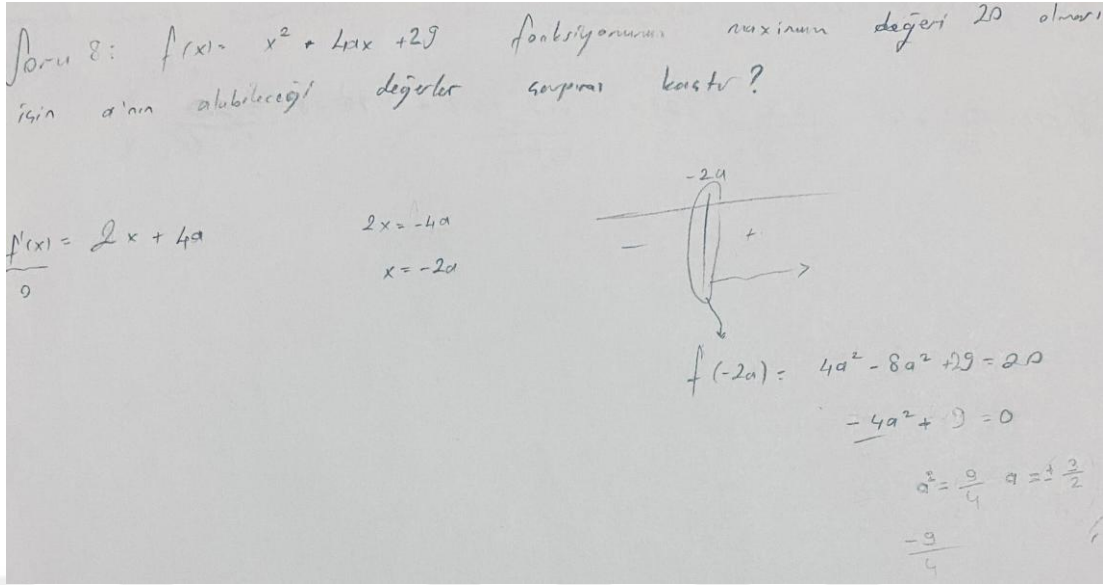 Soru 8: f(x) = x² + 4ax + 29 fonksiyonunun maximum değeri 20 olması
için a'nın alabileceği değerler çarpımı kaçtır?
f'(x) = 2x + 4a
0
2x = -4a
x = -2a
-2a
- +
f(-2a) = 4a² - 8a² + 29 = 20
-4a² + 9 = 0
a² = 9/4 a = ± 3/2
-9/4